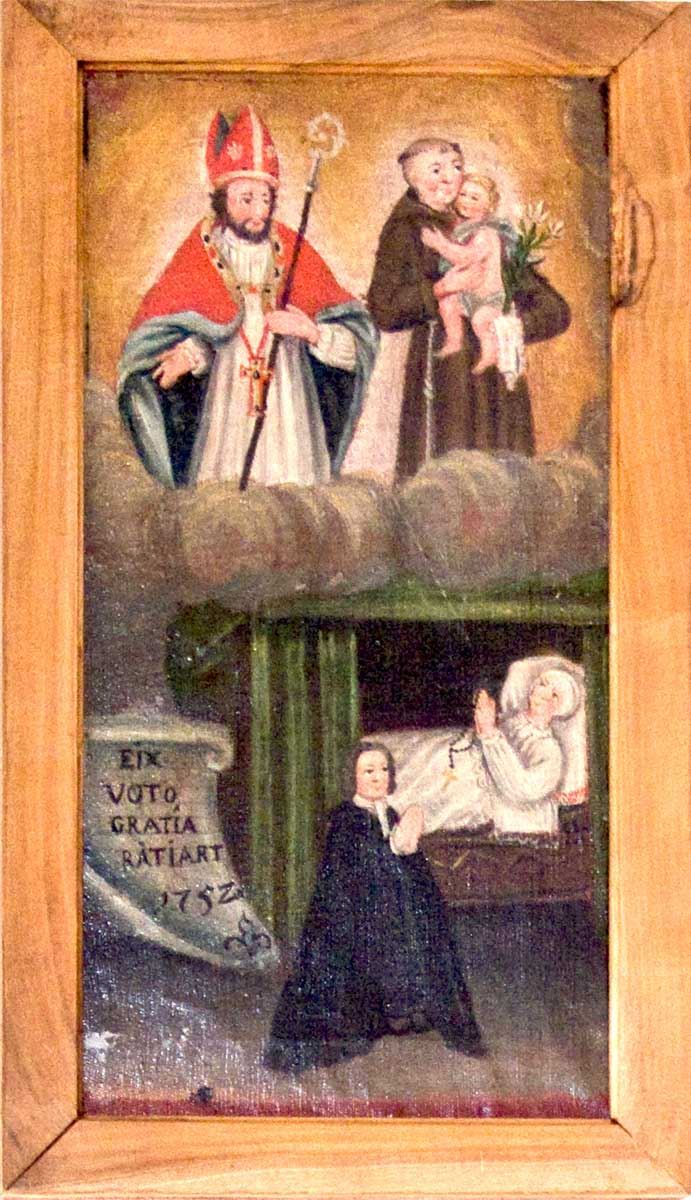 EIX
VOTO
GRATIA
RATIART
1752